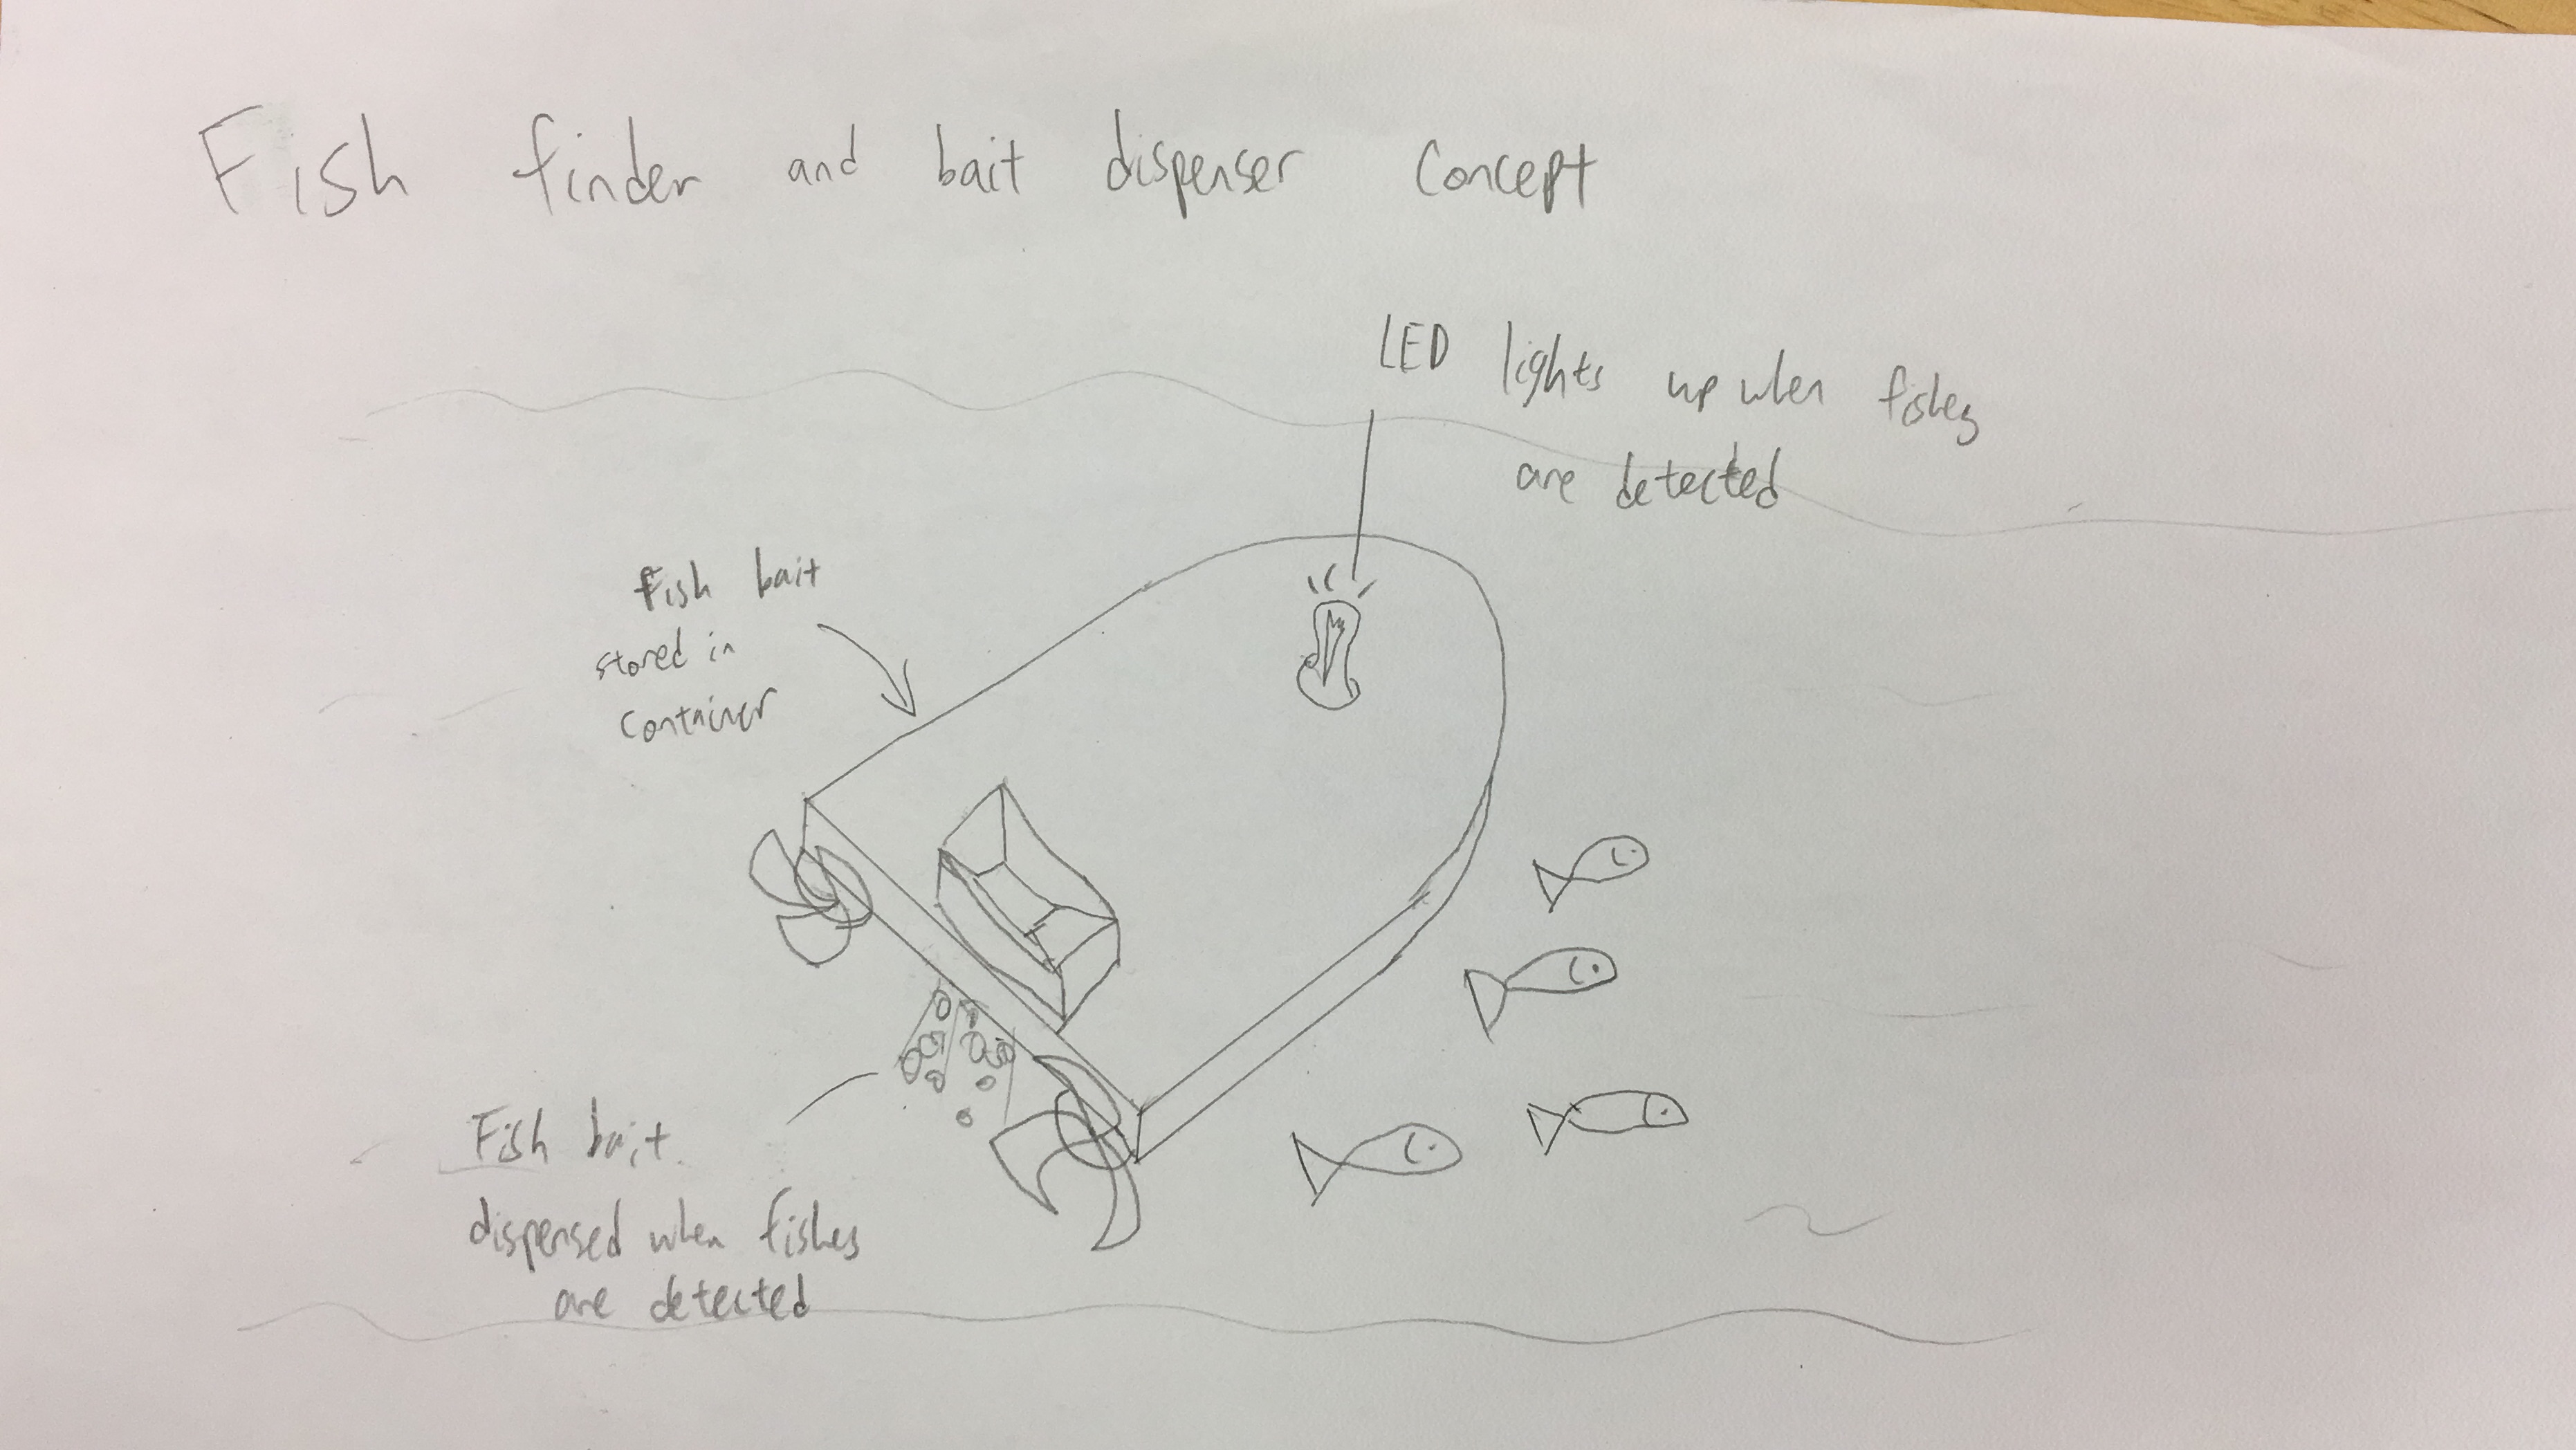 Fish finder and bait dispenser concept
LED lights up when fishes
are detected
Fish bait
stored in
container
Fish bait
dispensed when fishes
are detected